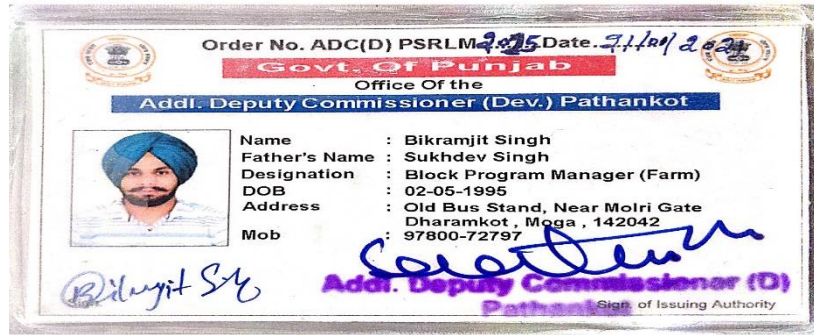 Order No. ADC(D) PSRLM 2025 Date.
Govt. Of Punjab
Office Of the
Addl. Deputy Commissioner (Dev.) Pathankot
Name : Bikramjit Singh
Father's Name : Sukhdev Singh
Designation : Block Program Manager (Farm)
DOB : 02-05-1995
Address : Old Bus Stand, Near Molri Gate
Dharamkot , Moga , 142042
Mob : 97800-72797
Addl. Deputy Commissioner (D)
Pathankot
Sign. of Issuing Authority